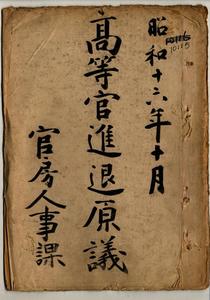 昭和十六年十月
高等官進退原議
官房人事課
10115